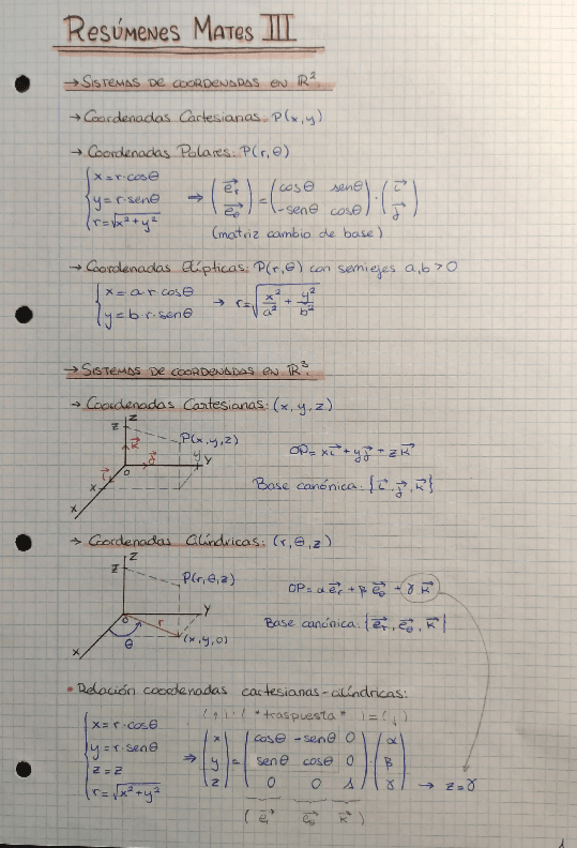 RESÚMENES MATES III
→ SISTEMAS DE COORDENADAS EN ℝ².
→ Coordenadas Cartesianas: P(x,y)
→ Coordenadas Polares: P(r,θ)
{ x=r·cosθ
y=r·senθ
r=√(x²+y²)
⇒ (e⃗r / e⃗θ) = (cosθ senθ / -senθ cosθ) · (i⃗ / j⃗)
(matriz cambio de base)
→ Coordenadas Elípticas: P(r,θ) con semiejes a,b>0
{ x=a·r·cosθ
y=b·r·senθ
→ r=√(x²/a² + y²/b²)
→ SISTEMAS DE COORDENADAS EN ℝ³.
→ Coordenadas Cartesianas: (x,y,z)
z
z
P(x,y,z)
k⃗
i⃗
j⃗
o
y
y
x
x
OP=xi⃗+yj⃗+zk⃗
Base canónica: {i⃗,j⃗,k⃗}
→ Coordenadas Cilíndricas: (r,θ,z)
z
z
P(r,θ,z)
o
y
r
θ
(x,y,0)
x
OP=αe⃗r+βe⃗θ+γk⃗
Base canónica: {e⃗r,e⃗θ,k⃗}
• Relación coordenadas cartesianas-cilíndricas:
{ x=r·cosθ
y=r·senθ
z=z
r=√(x²+y²)
"traspuesta"
⇒ (x / y / z) = (cosθ -senθ 0 / senθ cosθ 0 / 0 0 1) (α / β / γ) → z=γ
( e⃗r e⃗θ k⃗ )